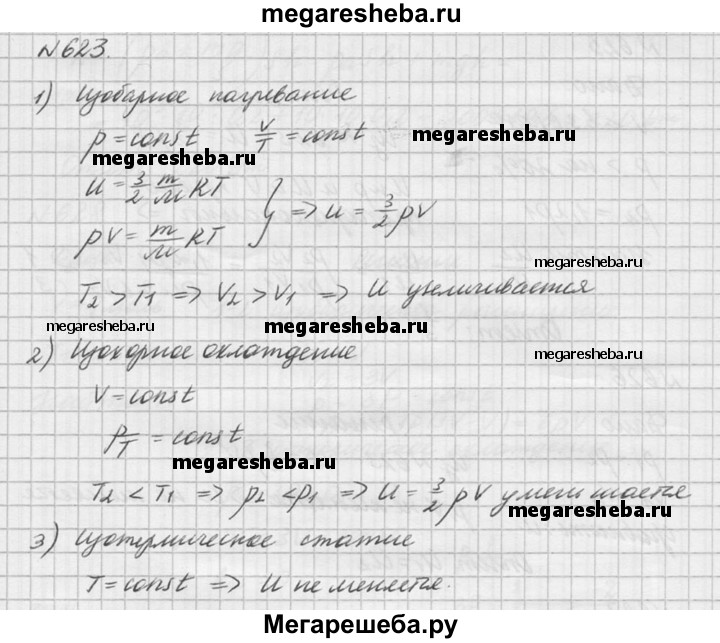 megaresheba.ru
№623.
1) Изобарное нагревание
p = const V/T = const
megaresheba.ru
megaresheba.ru
U = 3/2 m/M RT
pV = m/M RT } => U = 3/2 pV
megaresheba.ru
T₂ > T₁ => V₂ > V₁ => U увеличивается
megaresheba.ru
megaresheba.ru
2) Изохорное охлаждение
megaresheba.ru
V = const
p/T = const
megaresheba.ru
T₂ < T₁ => p₂ < p₁ => U = 3/2 pV уменьшается
megaresheba.ru
3) Изотермическое сжатие
T = const => U не меняется.
Мегарешеба.ру